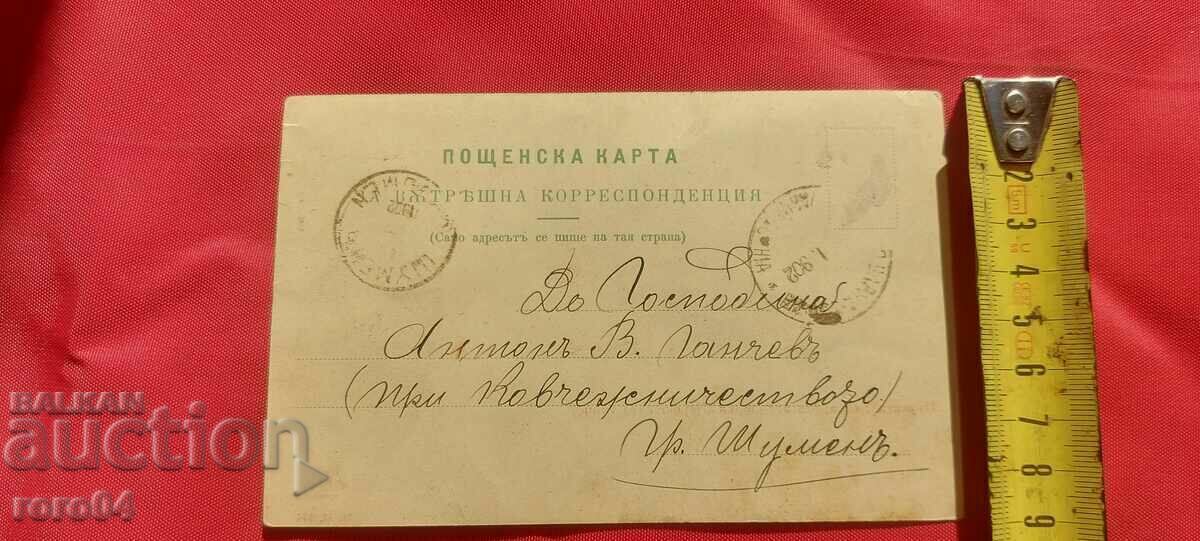 ПОЩЕНСКА КАРТА
ВѪТРѢШНА КОРРЕСПОНДЕНЦИЯ
(Само адресътъ се пише на тая страна)
До Господина
Антонъ В. Ганчевъ
(при Ковчежничествозо)
гр. Шуменъ.
ШУМЕНЪ
902
BALKAN
auction
roro04
2
3
4
5
6
7
8
9